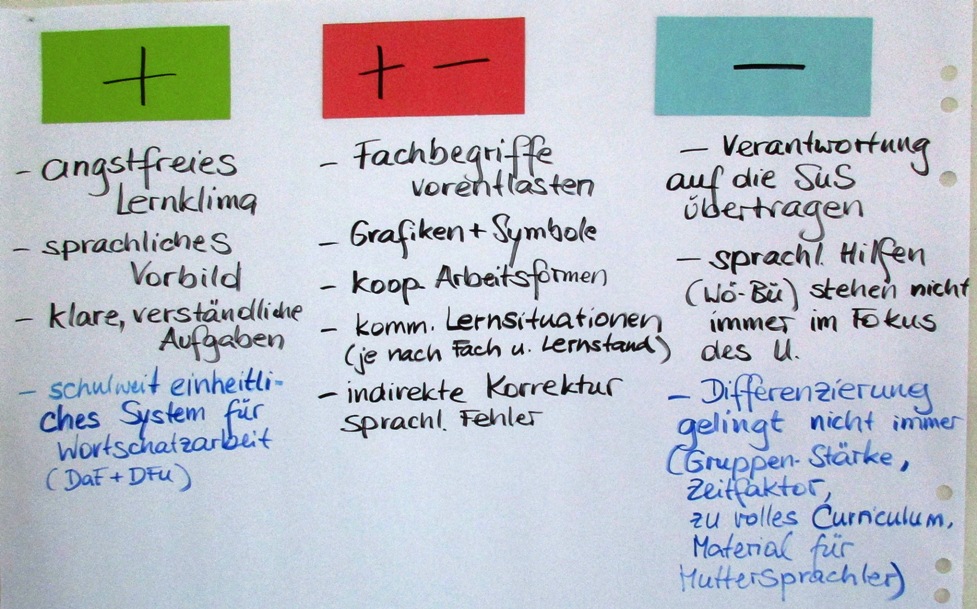 +
- angstfreies
Lernklima
- sprachliches
Vorbild
- klare, verständliche
Aufgaben
- schulweit einheitli-
ches System für
Wortschatzarbeit
(DaF + DFU)
+ -
- Fachbegriffe
vorentlasten
- Grafiken + Symbole
- koop. Arbeitsformen
- komm. Lernsituationen
(je nach Fach u. Lernstand)
- indirekte Korrektur
sprachl. Fehler
-
- Verantwortung
auf die SuS
übertragen
- sprachl. Hilfen
(Wö-Bü) stehen nicht
immer im Fokus
des U.
- Differenzierung
gelingt nicht immer
(Gruppen-Stärke,
Zeitfaktor,
zu volles Curriculum,
Material für
Muttersprachler)